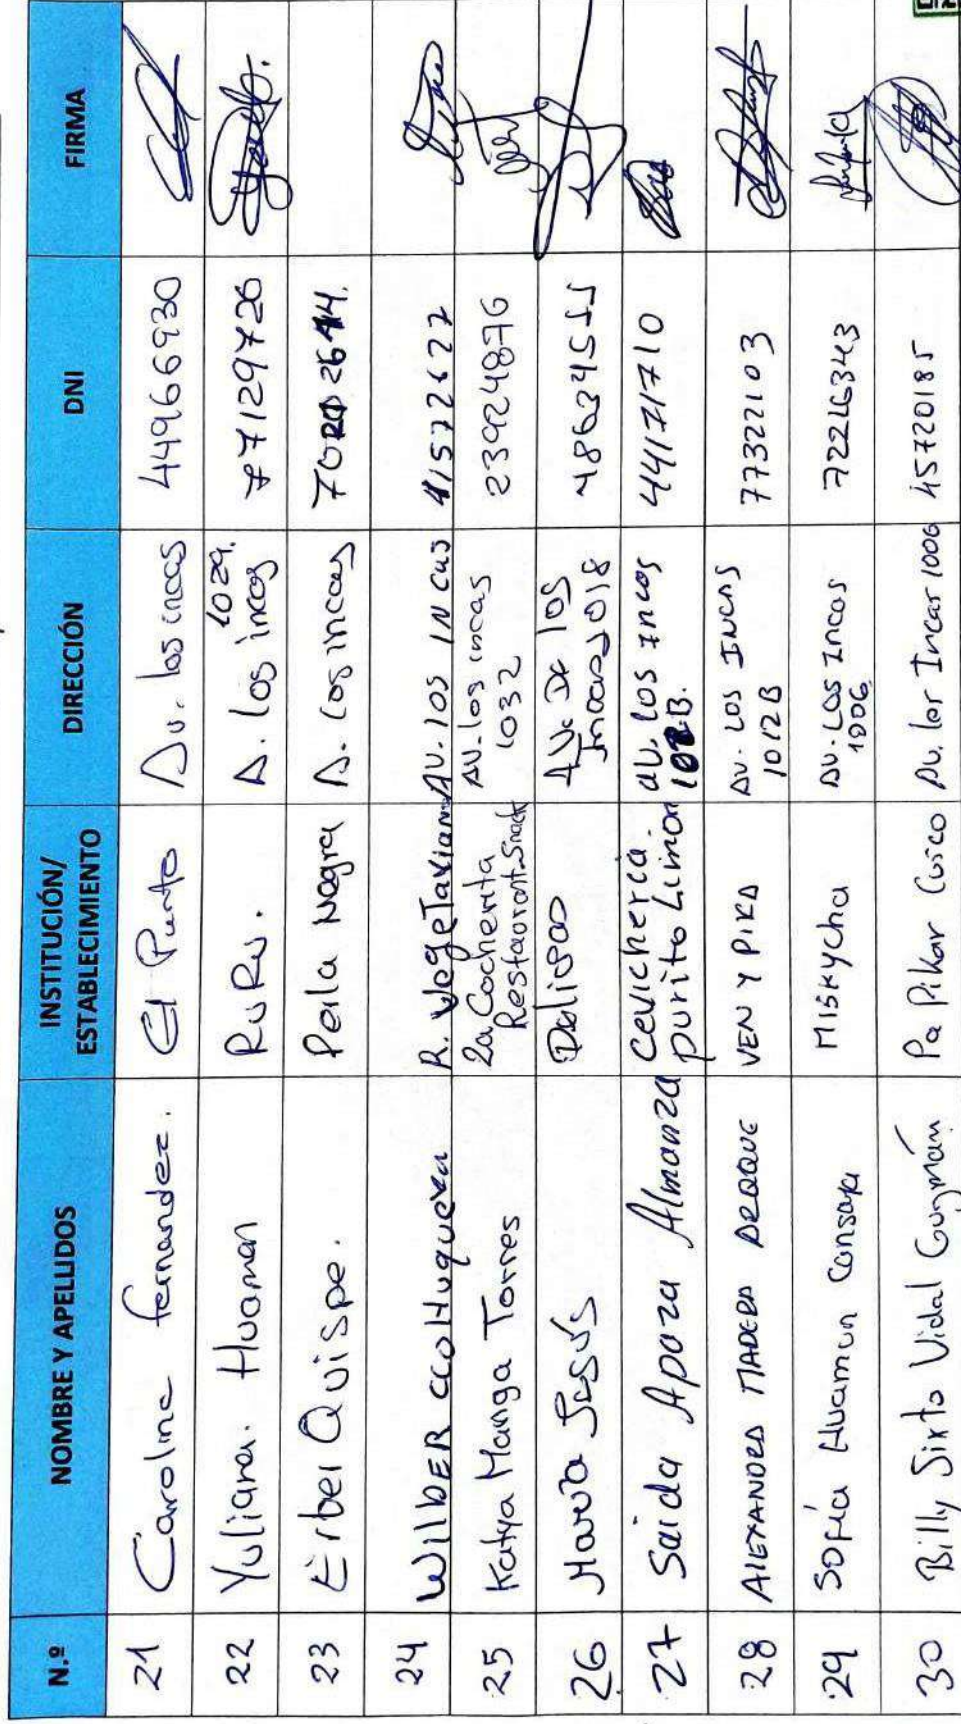 N.º NOMBRE Y APELLIDOS INSTITUCIÓN/ ESTABLECIMIENTO DIRECCIÓN DNI FIRMA
21 Carolina fernandez. El Punto Av. los incas 44966930
22 Yuliana. Huaman RuRu. A. los incas 1029. 77129726
23 Erbel Quispe. Perla Negra A. los incas
24 WilbER ccoHuquera R. VegeTariano AV. los INCas 41572627
25 Katya Manga Torres La Cocherita Restaurant-Snack AV. los incas 1032 23924876
26 Jesús AV. De los Incas 1018 48634555
27 Saida Apaza Almanza Cevicheria purito Limon av. Los Incas 44171710
28 ALEXANDRA MADERA VEN Y PIKA AV. LOS INCAS 1012B 77322103
29 Sofía Huaman Consaya MISKYcha AV. LOS Incas 1006 72216343
30 Billy Sixto Vidal Guzmán Pa Pikar Cusco Av. los Incas 1006 45720185